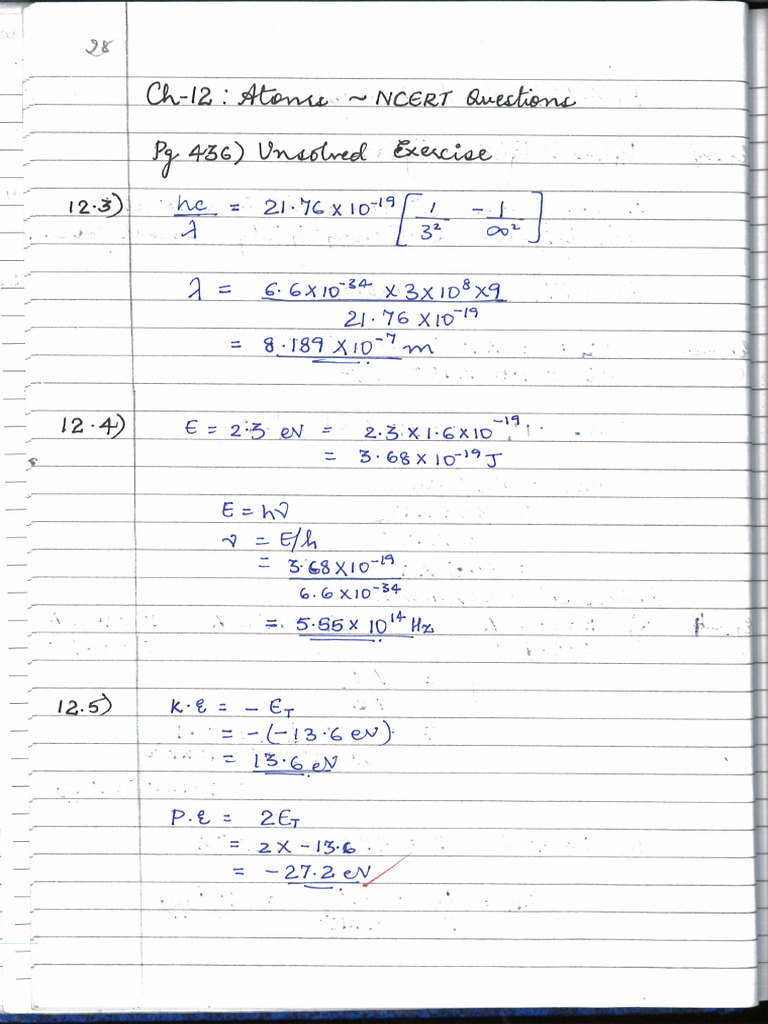 28
Ch-12 : Atoms ~ NCERT Questions
Pg 436) Unsolved Exercise
12.3) hc/λ = 21.76 x 10⁻¹⁹ [1/3² - 1/∞²]
λ = 6.6 x 10⁻³⁴ x 3 x 10⁸ x 9
21.76 x 10⁻¹⁹
= 8.189 x 10⁻⁷ m
12.4) E = 2.3 eV = 2.3 x 1.6 x 10⁻¹⁹
= 3.68 x 10⁻¹⁹ J
E = hν
ν = E/h
= 3.68 x 10⁻¹⁹
6.6 x 10⁻³⁴
= 5.55 x 10¹⁴ Hz
12.5) K.E = - E_T
= -(-13.6 eV)
= 13.6 eV
P.E = 2E_T
= 2 x -13.6
= -27.2 eV